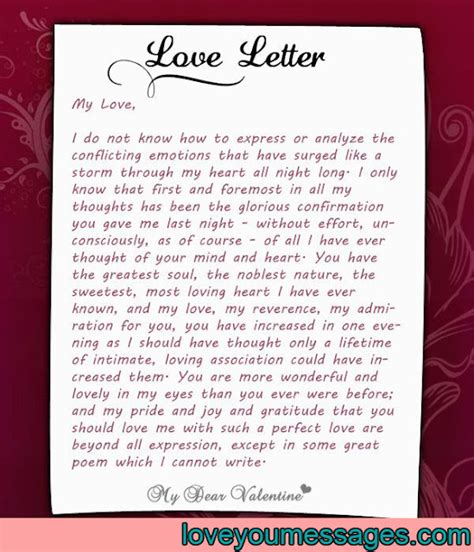 Love Letter
My Love,
I do not know how to express or analyze the
conflicting emotions that have surged like a
storm through my heart all night long. I only
know that first and foremost in all my
thoughts has been the glorious confirmation
you gave me last night - without effort, un-
consciously, as of course - of all I have ever
thought of your mind and heart. You have
the greatest soul, the noblest nature, the
sweetest, most loving heart I have ever
known, and my love, my reverence, my admi-
ration for you, you have increased in one eve-
ning as I should have thought only a lifetime
of intimate, loving association could have in-
creased them. You are more wonderful and
lovely in my eyes than you ever were before;
and my pride and joy and gratitude that you
should love me with such a perfect love are
beyond all expression, except in some great
poem which I cannot write.
My Dear Valentine
loveyoumessages.com